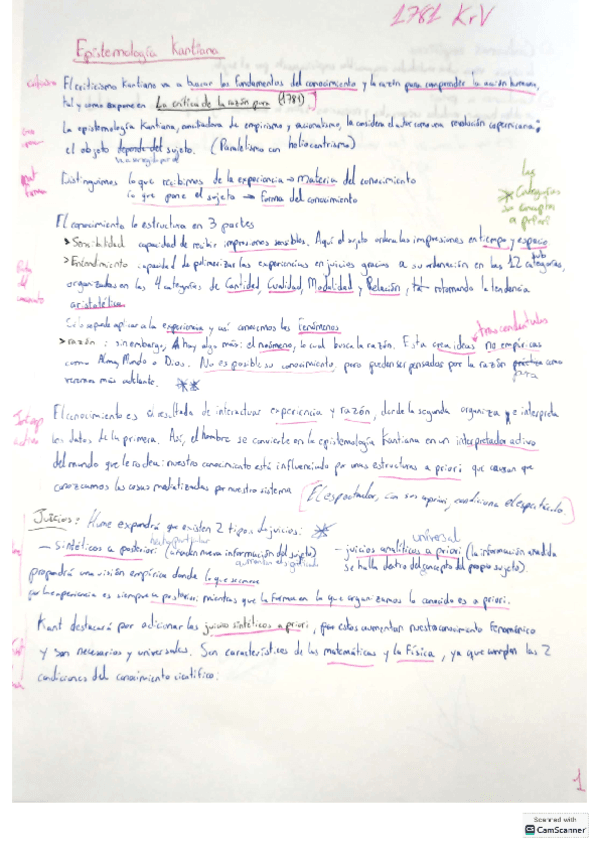 1781 KrV
Epistemología Kantiana
criticismo El criticismo Kantiano va a buscar los fundamentos del conocimiento y la razón para comprender la acción humana,
tal y como expone en La crítica de la razón pura (1781)
La epistemología Kantiana, conciliadora de empirismo y racionalismo, la considera el autor como una revolución copernicana;
el objeto depende del sujeto. (Paralelismo con heliocentrismo)
Distinguimos lo que recibimos de la experiencia → Materia del conocimiento
lo que pone el sujeto → Forma del conocimiento
las
Categorías
son conceptos
a priori
El conocimiento lo estructura en 3 partes
> Sensibilidad capacidad de recibir impresiones sensibles. Aquí el sujeto ordena las impresiones en tiempo y espacio
> Entendimiento capacidad de polimerizar las experiencias en juicios gracias a su ordenación en las 12 sub categorías,
organizadas en las 4 categorías de Cantidad, Cualidad, Modalidad y Relación, retomando la tendencia
aristotélica
Solo se puede aplicar a la experiencia y así conocemos los fenómenos
trascendentales
> razón: sin embargo, hay algo más: el noúmeno, lo cual busca la razón. Esta crea ideas no empíricas
como Alma, Mundo o Dios. No es posible su conocimiento, pero pueden ser pensadas por la razón práctica como
pura
veremos más adelante.
El conocimiento es el resultado de interactuar experiencia y razón, donde la segunda organiza e interpreta
los datos de la primera. Así, el hombre se convierte en la epistemología Kantiana en un interpretador activo
del mundo que le rodea: nuestro conocimiento está influenciado por unas estructuras a priori que causan que
conozcamos las cosas mediatizadas por nuestro sistema [El espectador, con sus a priori, condiciona el espectáculo.]
Juicios: Hume expondrá que existen 2 tipos de juicios:
universal
- Sintéticos a posteriori (añaden nueva información del sujeto) - juicios analíticos a priori (la información añadida
se halla dentro del concepto del propio sujeto).
propondrá una visión empírica donde lo que se conoce
por la experiencia es siempre a posteriori mientras que la forma en la que organizamos lo conocido es a priori.
Kant destacará por adicionar los juicios sintéticos a priori, pues estos aumentan nuestro conocimiento fenoménico
y son necesarios y universales. Son característicos de las matemáticas y la Física, ya que cumplen las 2
condiciones del conocimiento científico:
1
Scanned with
CamScanner